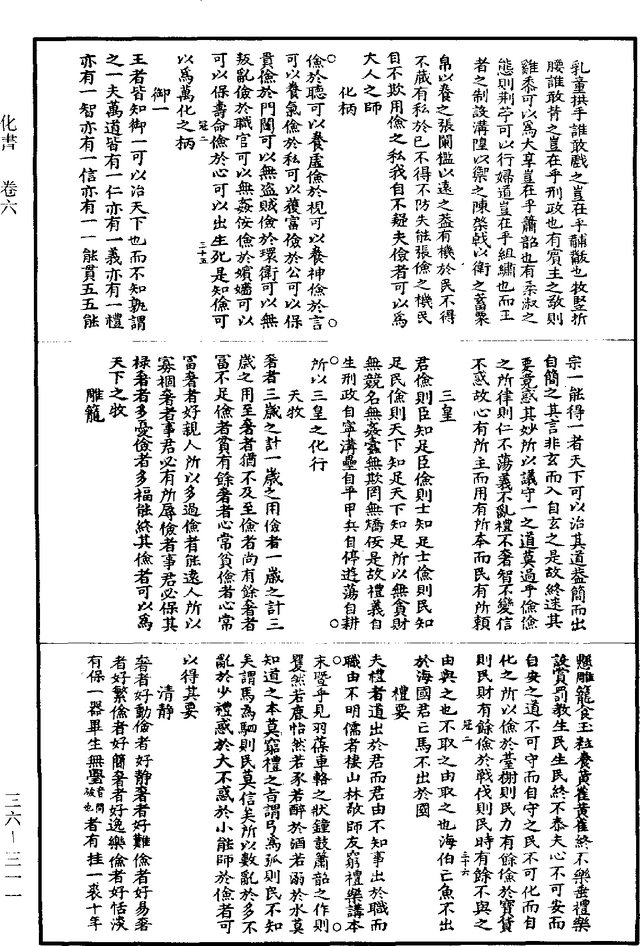 乳童拱手誰敢戲之豈在乎黼黻也牧豎折
腰誰敢背之豈在乎刑政也有賓主之敬則
雞黍可以為大享豈在乎簫韶也有柔淑之
態則荆苧可以行婦道豈在乎組繡也而王
者之制設溝隍以禦之陳棨戟以衛之蓄粟
帛以養之張闌檻以遠之蓋有機於民不得
不藏有私於已不得不防失能張儉之機民
自不欺用儉之私我自不疑夫儉者可以為
大人之師
化柄
儉於聽可以養虛儉於視可以養神儉於言
可以養氣儉於私可以獲富儉於公可以保
貴儉於門闥可以無盜賊儉於環衛可以無
叛亂儉於職官可以無姦佞儉於嬪嬙可以
冠二 三十五
可以保壽命儉於心可以出生死是知儉可
以為萬化之柄
御一
王者皆知御一可以治天下也而不知孰謂
之一夫萬道皆有一仁亦有一義亦有一禮
亦有一智亦有一信亦有一一能貫五五能
宗一能得一者天下可以治其道蓋簡而出
自簡之其言非玄而入自玄之是故終迷其
要竟惑其妙所以議守一之道莫過乎儉儉
之所律則仁不蕩義不亂禮不奢智不變信
不惑故心有所主而用有所本而民有所賴
三皇
君儉則臣知足臣儉則士知足士儉則民知
足民儉則天下知足天下知足所以無貪財
無競名無姦蠹無欺罔無矯佞是故禮義自
生刑政自寧溝壘自平甲兵自停遊蕩自耕
所以三皇之化行
天牧
奢者三歲之計一歲之用儉者一歲之計三
歲之用至奢者猶不及至儉者尚有餘奢者
富不足儉者貧有餘奢者心常貧儉者心常
富奢者好親人所以多過儉者能遠人所以
寡禍奢者事君必有所辱儉者事君必保其
祿奢者多憂儉者多福能終其儉者可以為
天下之牧
雕籠
懸雕籠食玉粒養黃雀黃雀終不樂垂禮樂
設賞罰教生民生民終不泰夫心不可安而
自安之道不可守而自守之民不可化而自
化之所以儉於臺榭則民力有餘儉於寶貨
冠二 三十六
則民財有餘儉於戰伐則民時有餘不與之
由與之也不取之由取之也海伯亡魚不出
於海國君亡馬不出於國
禮要
夫禮者道出於君而君由不知事出於職而
職由不明儒者棲山林敬師友窮禮樂講本
末暨乎見羽葆車輅之狀鐘鼓簫韶之作則
矍然若鹿怡然若豕若醉於酒若溺於水莫
知道之本莫窮禮之旨謂弓為弧則民不知
矣謂馬為駟則民莫信矣所以數亂於多不
亂於少禮惑於大不惑於小能師於儉者可
以得其要
清靜
奢者好動儉者好靜奢者好難儉者好易奢
者好繁儉者好簡奢者好逸樂儉者好恬淡
有保一器畢生無璺音問破也者有挂一裘十年
化書 卷六
三六—三一一